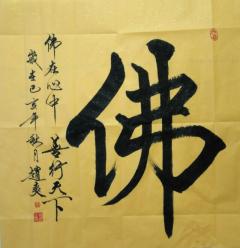 佛
佛在心中
善行天下
歲在己亥年秋月趙爽